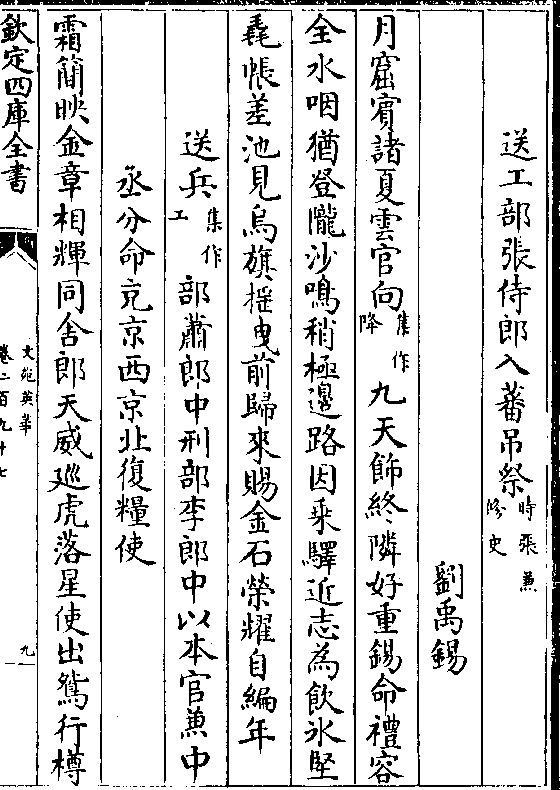 送工部張侍郎入蕃吊祭時張兼修史
劉禹錫
月窟賓諸夏雲官向集作降九天飾終隣好重錫命禮容
全水咽猶登隴沙鳴稍極邊路因乘驛近志為飲氷堅
毳帳差池見烏旗揺曳前歸來賜金石榮耀自編年
送兵集作工部蕭郎中刑部李郎中以本官兼中
丞分命充京西京北復糧使
霜簡映金章相輝同舍郎天威巡虎落星使出鴛行樽
欽定四庫全書
文苑英華
卷二百九十七
九